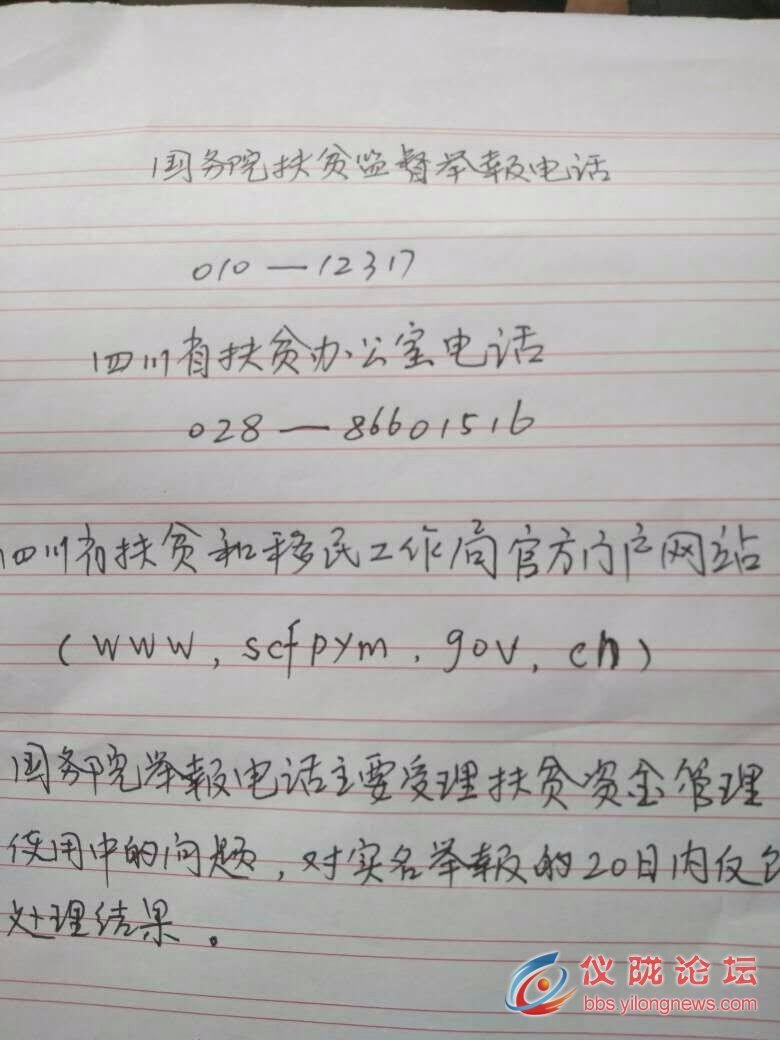 国务院扶贫监督举报电话
010—12317
四川省扶贫办公室电话
028—86601516
四川省扶贫和移民工作局官方门户网站
(www,scfpym.gov,cn)
国务院举报电话主要受理扶贫资金管理
使用中的问题,对实名举报的20日内
处理结果。
仪陇论坛
bbs.yilongnews.com